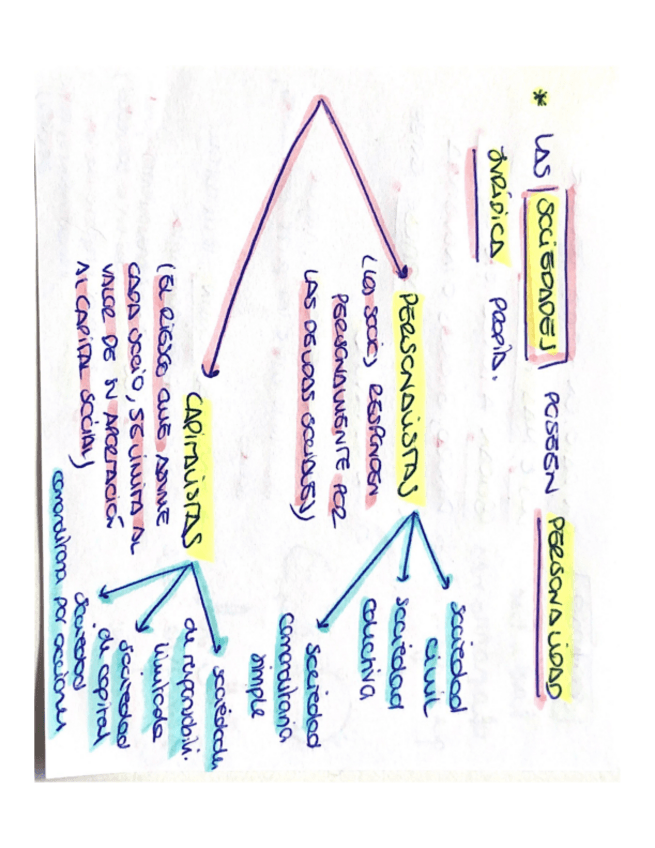 * LAS SOCIEDADES POSEEN PERSONALIDAD
JURÍDICA PROPIA.
PERSONALISTAS
(LOS SOCIOS RESPONDEN
PERSONALMENTE POR
LAS DEUDAS SOCIALES)
sociedad
civil
sociedad
colectiva
sociedad
comanditaria
simple
CAPITALISTAS
(EL RIESGO QUE ASUME
CADA SOCIO, SE LIMITA AL
VALOR DE SU APORTACIÓN
AL CAPITAL SOCIAL)
sociedades
de responsabili.
limitada
sociedad
de capital
sociedad
comanditaria por acciones